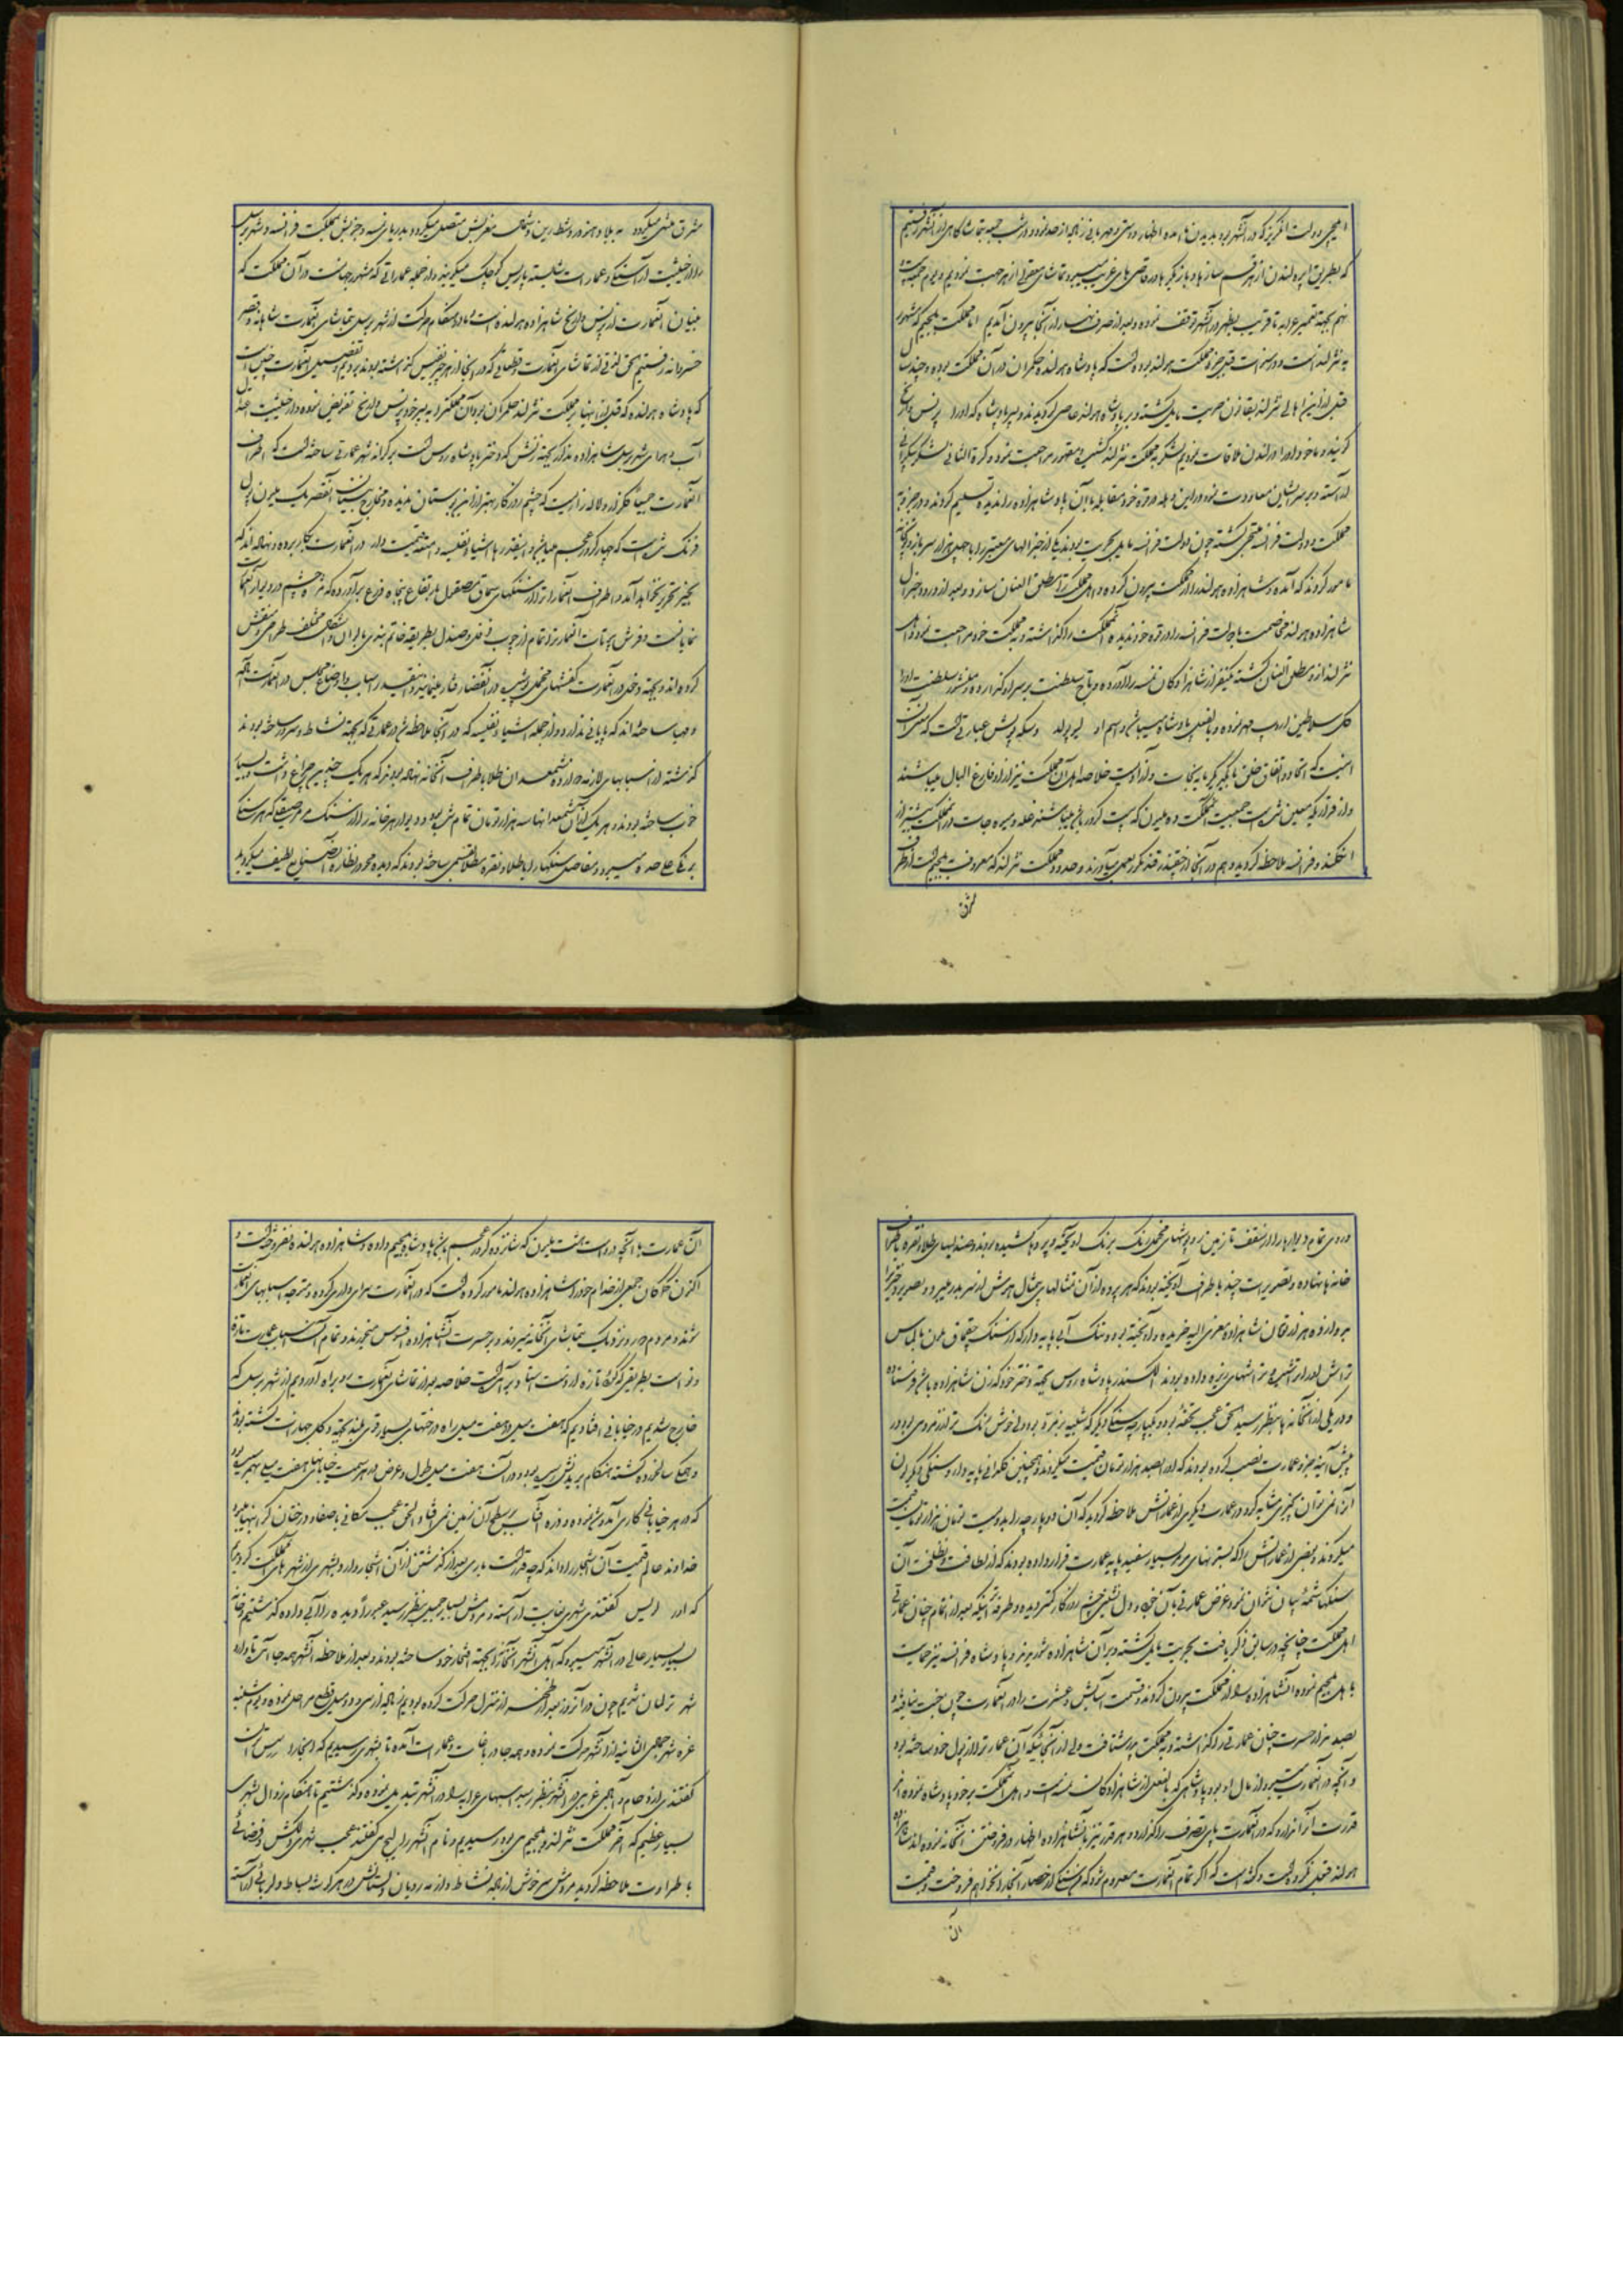 ایلچی دولت انگریز که در آنشهر بود بدیدن ما آمده اظهار دوستی و مهربانی زیاده از حد نمود و در شب جمعه بتماشاگاهی از آنشهر رفتیم
که بطریق اپره لندن از هر قسم سازها و بازیگرها و رقاصی های غریب و تماشای از هر جهت نمودیم و یوم جمعه
نهم بجهة تعمیر عرابه تا قریب بظهر در آنشهر توقف نموده و بعد از صرف نهار از آنجا بیرون آمدیم اما مملکت بلجیم که مشهور
به نثرلند است در سنوات قبل جزء مملکت هولند بوده است که پادشاه هولنده حکمران در آن مملکت بوده و چند سال
قبل از این اهالی نثرلند بقانون حریت مایل گشته و بر پادشاه هولند عاصی گردیدند و پسر پادشاه که او را پرنس
گویند و ما خود او را در لندن ملاقات نمودیم لشکر بمملکت نثرلند کشیده مقهور مراجعت نمود و کرة الثانی لشکر
آراسته و بر سر ایشان معاودت نمود و این دفعه در قوه خود مقابله با آن پادشاهزاده را ندیده تسلیم کردند و در جزو
مملکت و دولت فرانسه ملتجی گشته چون دولت فرانسه مایل بحریت بودند یکی از جنرالهای معتبر را با چهل هزار سرباز و توپخانه
مأمور کردند که آمده و شاهزاده هولند را از مملکت بیرون کرده و اهل مملکت را مطلق العنان سازد و بعد از ورود جنرال
شاهزاده هولند مخاصمت با دولت فرانسه را در قوه خود ندیده آنمملکت را گذاشته و به مملکت خود مراجعت نمود و اهل
نثرلند از نو مطلق العنان گشته یکنفر از شاهزادگان نمسه را آورده و تاج سلطنت بر سر او گذارده و منشور سلطنت او را
کل سلاطین اروپ مهر نموده و بالفعل پادشاه میباشد و اسم او لیوپولد و سکه پولش عبارتی است که معنی آن
اینست که اتحاد و اتفاق خلق با یکدیگر مایه نجات و آزادیست خلاصه اهل آن مملکت نیز آزاد و فارغ البال میباشند
و از قراریکه معین شده است جمعیت آنمملکت ده ملیون که بیست کرور باشد میباشند غله و میوه جات در آنمملکت بیشتر از
انگلند و فرانسه ملاحظه گردید و هم در آنجا از چغندر قند مکرر بعمل میآورند و حدود مملکت نثرلند که معروف به بلجیم است از طرف
مشرق
مشرق منتهی میگردد به بلاد و رود رین و شمال مغربیش متصل میگردد بدریای و جنوبش بمملکت فرانسه و شهر برسل
را از حیثیت آراستگی و عمارات شایسته پاریس کوچک میگویند و از جمله عماراتی که مشهور جهانست در آن مملکت که
بنیان آنعمارت از پرنس شاهزاده هولنده است ما در هنگام حرکت از شهر برسل بتماشای آنعمارت شاهانه و قصر
خسروانه رفتیم الحق لذتی از تماشای آنعمارت و قطعاتی که در آنجا از هر چیز نفیس گذاشته بودند بردیم و تفصیل آنعمارت چنین است
که پادشاه هولنده که قبل از اینها بر مملکت نثرلند حکمران بود آن مملکت را به پسر خود پرنس تفویض نموده و از حیثیت اعتدال
آب و هوای شهر برسل شاهزاده مذکور بجهة زنش که دختر پادشاه روس است بر کرانه شهر عمارتی ساخته است که اطراف
آنعمارت گلزار و لاله زاریست که چشم روزگار بهتر از این بوستان ندیده و مخارج بنیان آنقصر یک ملیون پول
فرنگ شده است که چهار کرور عجم میباشد و اینقدرها اشیاء نفیسه و امتعه قیمت دار در آنعمارت بکار برده و نهاده اند که
بحیز تحریر نخواهد آمد و اطراف آنعمارت را از سنگهای سماق مصقول بارتفاع پنجاه ذرع برآورده که
نمایانست و فرش بیوتات آنعمارت تمام از چوب فوفل و صندل بطریقه خاتم بندی بالوان و اشکال مختلف طراحی و نقش
کرده اند و بجهة دخول در آنعمارت کفشهای مخملی پوشیده در آنفضا رفتار مینمایند و آنقدر اسباب و اوضاع مجلس در آنعمارت نهاده
و مهیا ساخته اند که پایانی ندارد و از جمله اشیاء نفیسه که در آنجا ملاحظه شد در عمارتی که بجهة نشاط و سرور ساخته بودند
گذشته از اسبابهای لازمه دوازده شمعدان طلا باطراف آنخانه نهاده بودند که هر یک چندین چراغ داشت بسیار
خوب ساخته بودند و هر یک از آن شمعدانها سه هزار تومان تمام شده بود و دیوار هر خانه را از سنگ مرمر صیقلی که هر سنگی
برنگی علاحده میبود و مفاصل سنگها را با طلا و نقره مطلا قسمی ساخته بودند که دیده محو نظاره آنصنایع لطیف میگردید
و روی تمام دیوارها را از سقف تا زمین پرده پوشهای مخمل رنگ برنگ آویخته و پرده ها کشیده بودند و صندلیهای طلا و نقره باطراف
خانه ها نهاده و تصویرات چند باطراف آویخته بودند که هر پرده از آن تمثالهای بیمثال هوش از سر بدر میبرد و تصویر دختری را
بدوازده هزار تومان شاهزاده معزی الیه خریده و آویخته بود و تنگ آبی پایه دار که از سنگ چقماق ملون بالماس
تراش بود از تراشهای ریزه داده بودند الکسندر پادشاه روس بجهة دختر خود که زن شاهزاده باشد فرستاده
و در یکی از آنخانه ها بنظر رسید الحق عجب تحفه بود و یکپارچه سنگ دیگر که شبیه بزمرد بود ولی خوش رنگ تر از زمرد می بود در
پیش آینه جزو عمارت نصب کرده بودند که او را بصد هزار تومان قیمت میکردند و همچنین گلدانی پایه دار و سنگی دیگر که از آن
آنرا نمی توان بچیزی مشابه کرد در عمارت دیگری از عماراتش ملاحظه گردید که آن دو پارچه را بدویست تومان هزار تومان قیمت
میکردند و بعضی از عماراتش را که بستونهای مرمر بسیار سفید پایه عمارت قرار داده بودند که از لطافت و نظافت آن
سنگها شمه بیان نتوان نمود غرض عمارتی بآن خوبی و دل نشینی چشم روزگار کمتر دیده و طرفه اینکه بعد از اتمام چنان عمارتی
اهل مملکت چنانچه در سابق ذکر یافت بحریت مایل گشته و بر آن شاهزاده شوریدند و پادشاه فرانسه نیز حمایت
باهل بلجیم نموده آنشاهزاده را از آنمملکت بیرون کردند و قسمت آسایش و عشرت را در آنعمارت چون بخت نیافته
بصد هزار حسرت چنان عمارتی را گذاشته و به مملکت پدر شتافت ولی از آنجائیکه آن عمارت را از پول خود ساخته بود
و آنچه در آنعمارت میبود از مال او بود پادشاهی که بالفعل از شاهزادگان نمسه است و اهل آنمملکت بر خود پادشاه نموده اند
قدرت آن را ندارد که در آنعمارت پای تصرف گذارد و هر قدر نیز بآنشاهزاده اظهار در فروختن آنخانه نموده اند شاهزاده
هولند قبول نکرده است و گفته است که اگر تمام آنعمارت معدوم شود که سنگی از حصار آنجا را نخواهم فروخت و قیمت
آن
آن عمارت با آنچه در اوست هشت ملیون که شانزده کرور عجم باشد پادشاه بلجیم داده و شاهزاده هولنده نفروخته است و
اکنون جمعی از خدام خود را شاهزاده هولند مأمور کرده است که در آنعمارت سرای داری کرده و متوجه اسبابهای آنعمارت
شوند و مردم دور و نزدیک بتماشای آنخانه میروند و بر حسرت آنشاهزاده افسوس میخورند و تمام آن اسباب عمارت تازه
و نو است بطریقی که گویا تازه از دست استاد برآمده است خلاصه بعد از تماشای آنعمارت رو براه آوردیم از شهر برسل که
خارج شدیم در خیابانی افتادیم که هفت میل در هفت میل راه درختهای بسیار قوی بلند بجهة و کل جهازات کشته بودند
و همگی سالخورده گشته هنگام بریدنش رسیده بود و در آن هفت میل طول و عرض در هر سمت خیابانهای هفت میل بهم رسیده بود
که در هر خیابانی کاری آمد و شد نموده و ذره آفتاب بر سطح آن زمین نمی افتاد الحق عجیب مکانی با صفا و درختان گرانبها بود
خداوند عالم قیمت آن اشجار را داند که چه قدر است باری بعد از گذشتن از آن اشجار وارد بشهری از شهرهای آنمملکت گردیدیم
که او را لیس گفتندی شهری بغایت آراسته و مردمش بسیار جمیل بنظر رسید عبور راه آهن داده گذشتیم
بسیار بسیار عالی در آنشهر میبود که اهل آنشهر آنخانه را بجهة افتخار خود ساخته بودند و بعد از ملاحظه آنشهر همه جا آمدیم تا وارد
شهر ترلمان شدیم چون در آنروز بعد از ظهر از منزل حرکت کرده بودیم زیاده از سی و دو میل قطع مراحل نموده و یوم شنبه
غره شهر جمادی الثانیه از آنشهر حرکت نموده و همه جا در باغات و عمارات آمده تا بشهری رسیدیم که آنجا را
گفتندی ازدحام و اجماعی غریب در آنشهر بنظر رسید اسبهای عرابه را در آنشهر تبدیل نموده و گذشتیم تا هنگام زوال بشهری
بسیار عظیم که آخر مملکت نثرلند و بلجیم می بود رسیدیم و نام آنشهر را لیج می گفتند عجب شهری دلکش و فضائی
با طراوت ملاحظه گردید مردمش سرخوش از باده نشاط و از مه رویان دلستانش در هر گوشه بساط دلربائی آراسته